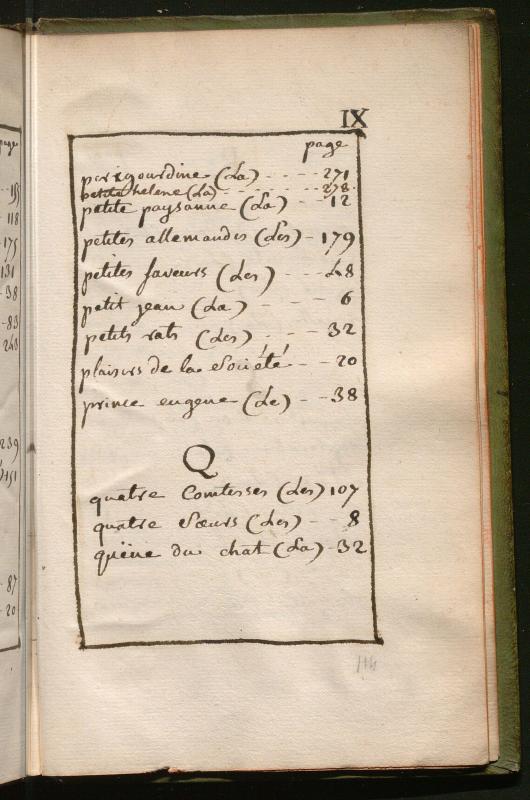 page
155
118
175
131
38
83
239
151
87
20
IX
page
perigourdine (La) - - - - 271
petite helene (La) - - - - - 278.
petite paysanne (La) - - - 12
petites allemandes (Les) - 179
petites faveurs (Les) - - - 48
petit jean (La) - - - 6
petits rats (Les) - - - 32
plaisirs de la Société - - 20
prince eugene (Le) - - 38
Q
quatre Comtesses (Les) 107
quatre Sœurs (Les) - - 8
quëüe du chat (La) - 32